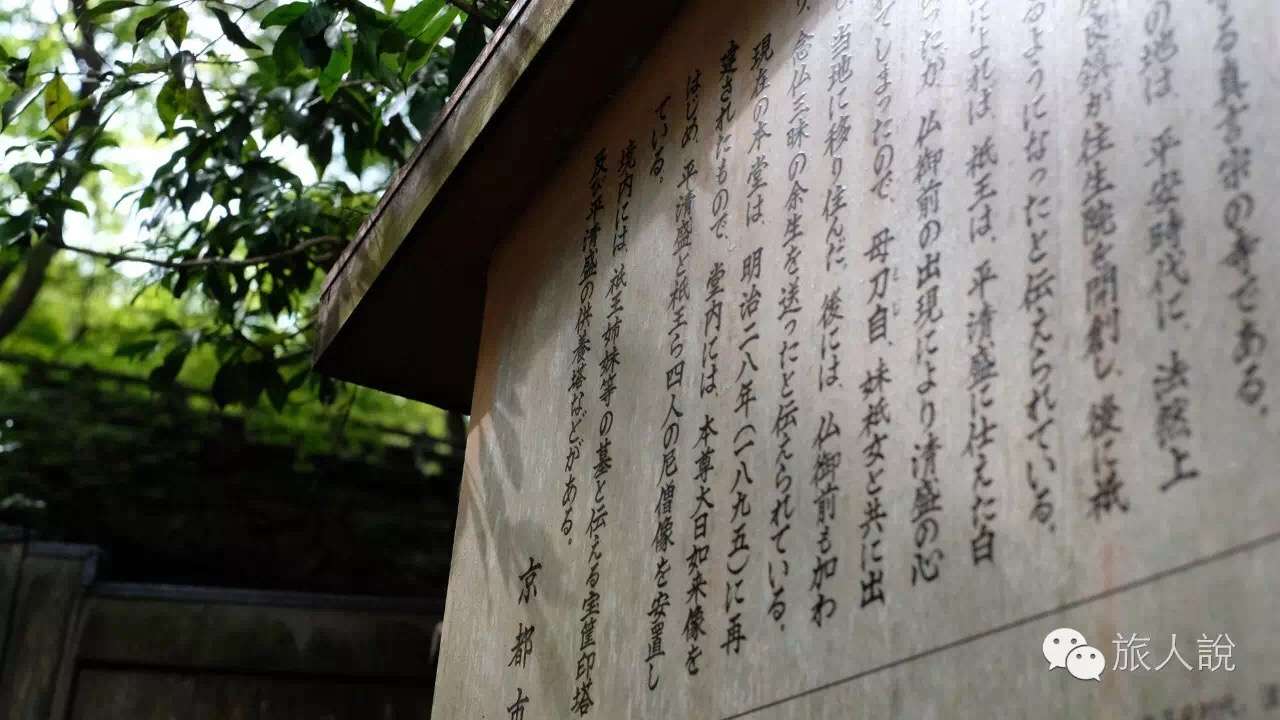 る真言宗の寺である。
の地は、平安時代に、法然上
良鎮が往生院を開創し、後に祇
るようになったと伝えられている。
によれば、祇王は、平清盛に仕えた白
ったが、仏御前の出現により清盛の心
てしまったので、母刀自、妹祇女と共に出
当地に移り住んだ。後には、仏御前も加わ
念仏三昧の余生を送ったと伝えられている。
現在の本堂は、明治二八年(一八九五)に再
建されたもので、堂内には、本尊大日如来像を
はじめ、平清盛と祇王ら四人の尼僧像を安置し
ている。
境内には、祇王姉妹等の墓と伝える宝筐印塔
及び平清盛の供養塔などがある。
京都市
旅人說